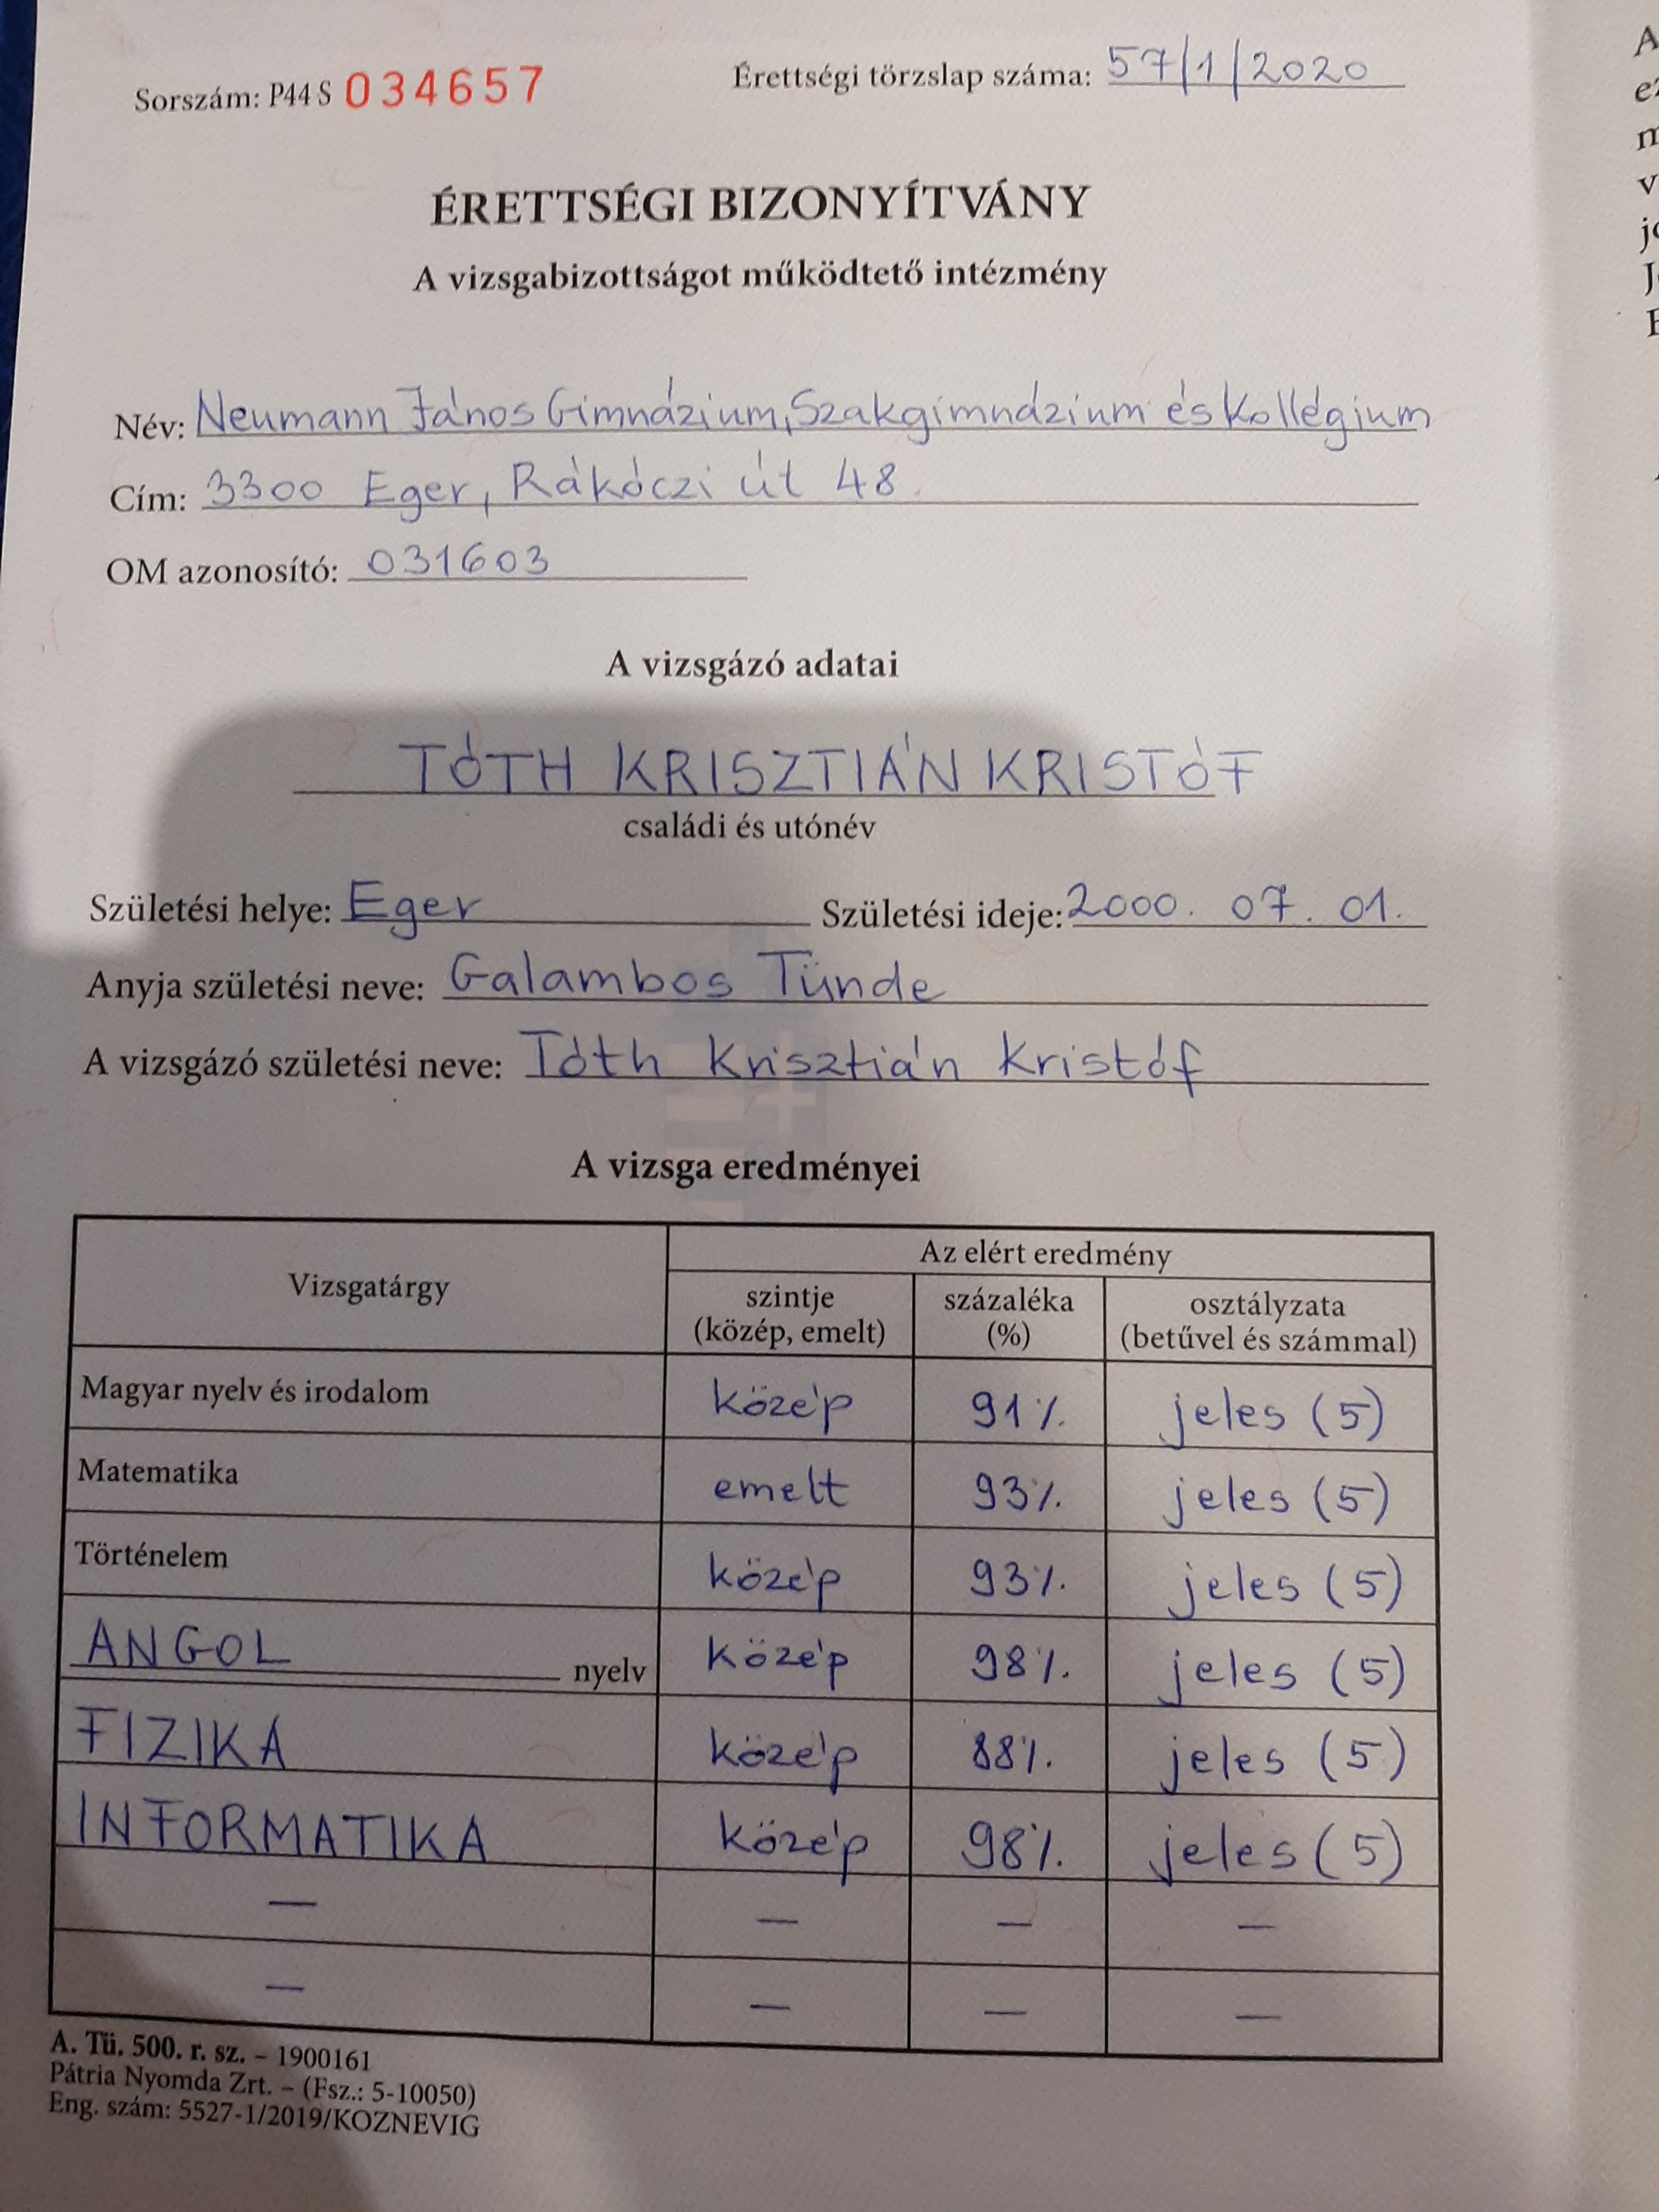 Sorszám: P44 S 034657 Érettségi törzslap száma: 57/1/2020
ÉRETTSÉGI BIZONYÍTVÁNY
A vizsgabizottságot működtető intézmény
Név: Neumann János Gimnázium, Szakgimnázium és Kollégium
Cím: 3300 Eger, Rákóczi út 48.
OM azonosító: 031603
A vizsgázó adatai
TÓTH KRISZTIÁN KRISTÓF
családi és utónév
Születési helye: Eger Születési ideje: 2000. 07. 01.
Anyja születési neve: Galambos Tünde
A vizsgázó születési neve: Tóth Krisztián Kristóf
A vizsga eredményei
Vizsgatárgy Az elért eredmény
szintje (közép, emelt) százaléka (%) osztályzata (betűvel és számmal)
Magyar nyelv és irodalom közép 91% jeles (5)
Matematika emelt 93% jeles (5)
Történelem közép 93% jeles (5)
ANGOL nyelv közép 98% jeles (5)
FIZIKA közép 88% jeles (5)
INFORMATIKA közép 98% jeles (5)
— — — —
— — — —
A. Tü. 500. r. sz. – 1900161
Pátria Nyomda Zrt. – (Fsz.: 5-10050)
Eng. szám: 5527-1/2019/KOZNEVIG